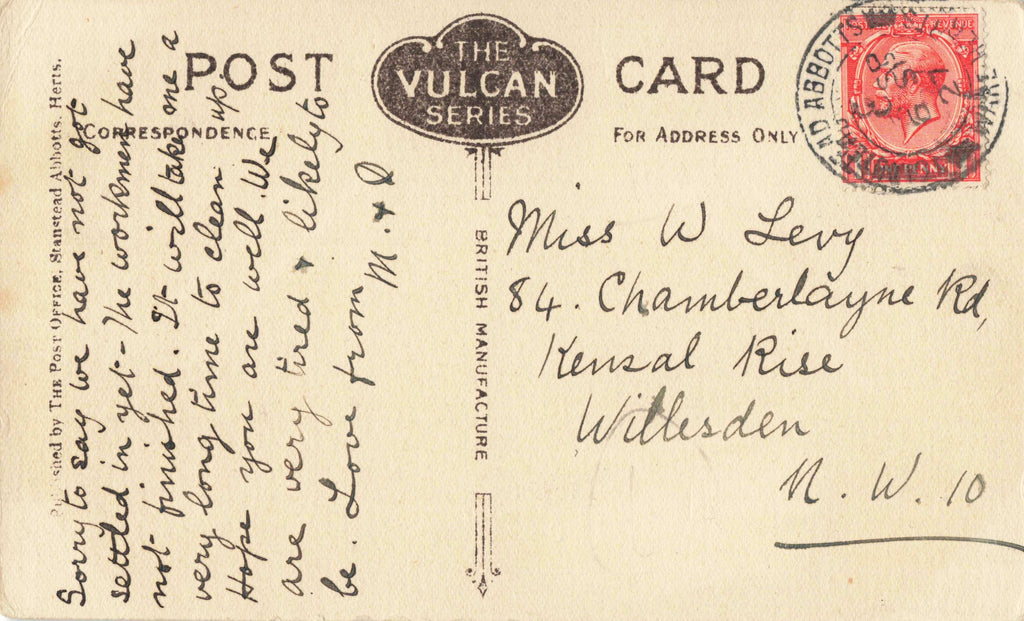 POST CARD
THE
VULCAN
SERIES
CORRESPONDENCE
FOR ADDRESS ONLY
BRITISH MANUFACTURE
Published by THE POST OFFICE, Stanstead Abbotts, Herts.
Sorry to say we have not got
settled in yet - The workmen have
not finished. It will take me a
very long time to clean up.
Hope you are well. We
are very tired + likely to
be. Love from
M. +
Miss W Levy
84. Chamberlayne Rd,
Kensal Rise
Willesden
N. W. 10
REVENUE
ABBOTTS